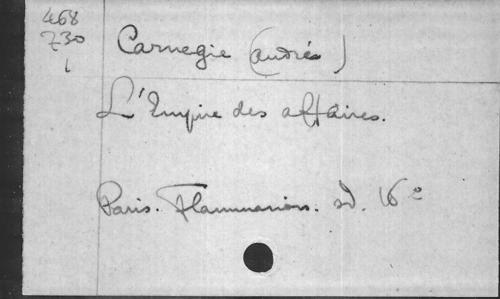 468
730
1
Carnegie (André)
L'Empire des affaires.
Paris. Flammarion. sd. 16°